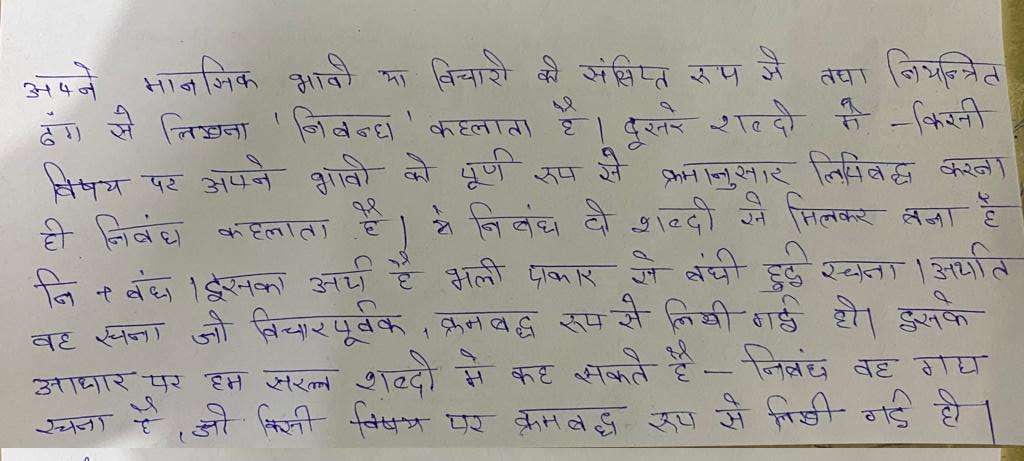 अपने मानसिक भावो या विचारो को संक्षिप्त रूप से तथा नियन्त्रित
ढंग से लिखना 'निबन्ध' कहलाता है। दूसरे शब्दो मे - किसी
विषय पर अपने भावो को पूर्ण रूप से क्रमानुसार लिपिबद्ध करना
ही निबंध कहलाता है। ये निबंध दो शब्दो से मिलकर बना है
नि + बंध। इसका अर्थ है भली प्रकार से बंधी हुई रचना। अर्थात
वह रचना जो विचारपूर्वक, क्रमबद्ध रूप से लिखी गई हो। इसके
आधार पर हम सरल शब्दो मे कह सकते है - निबंध वह गद्य
रचना है, जो किसी विषय पर क्रमबद्ध रूप से लिखी गई हो।